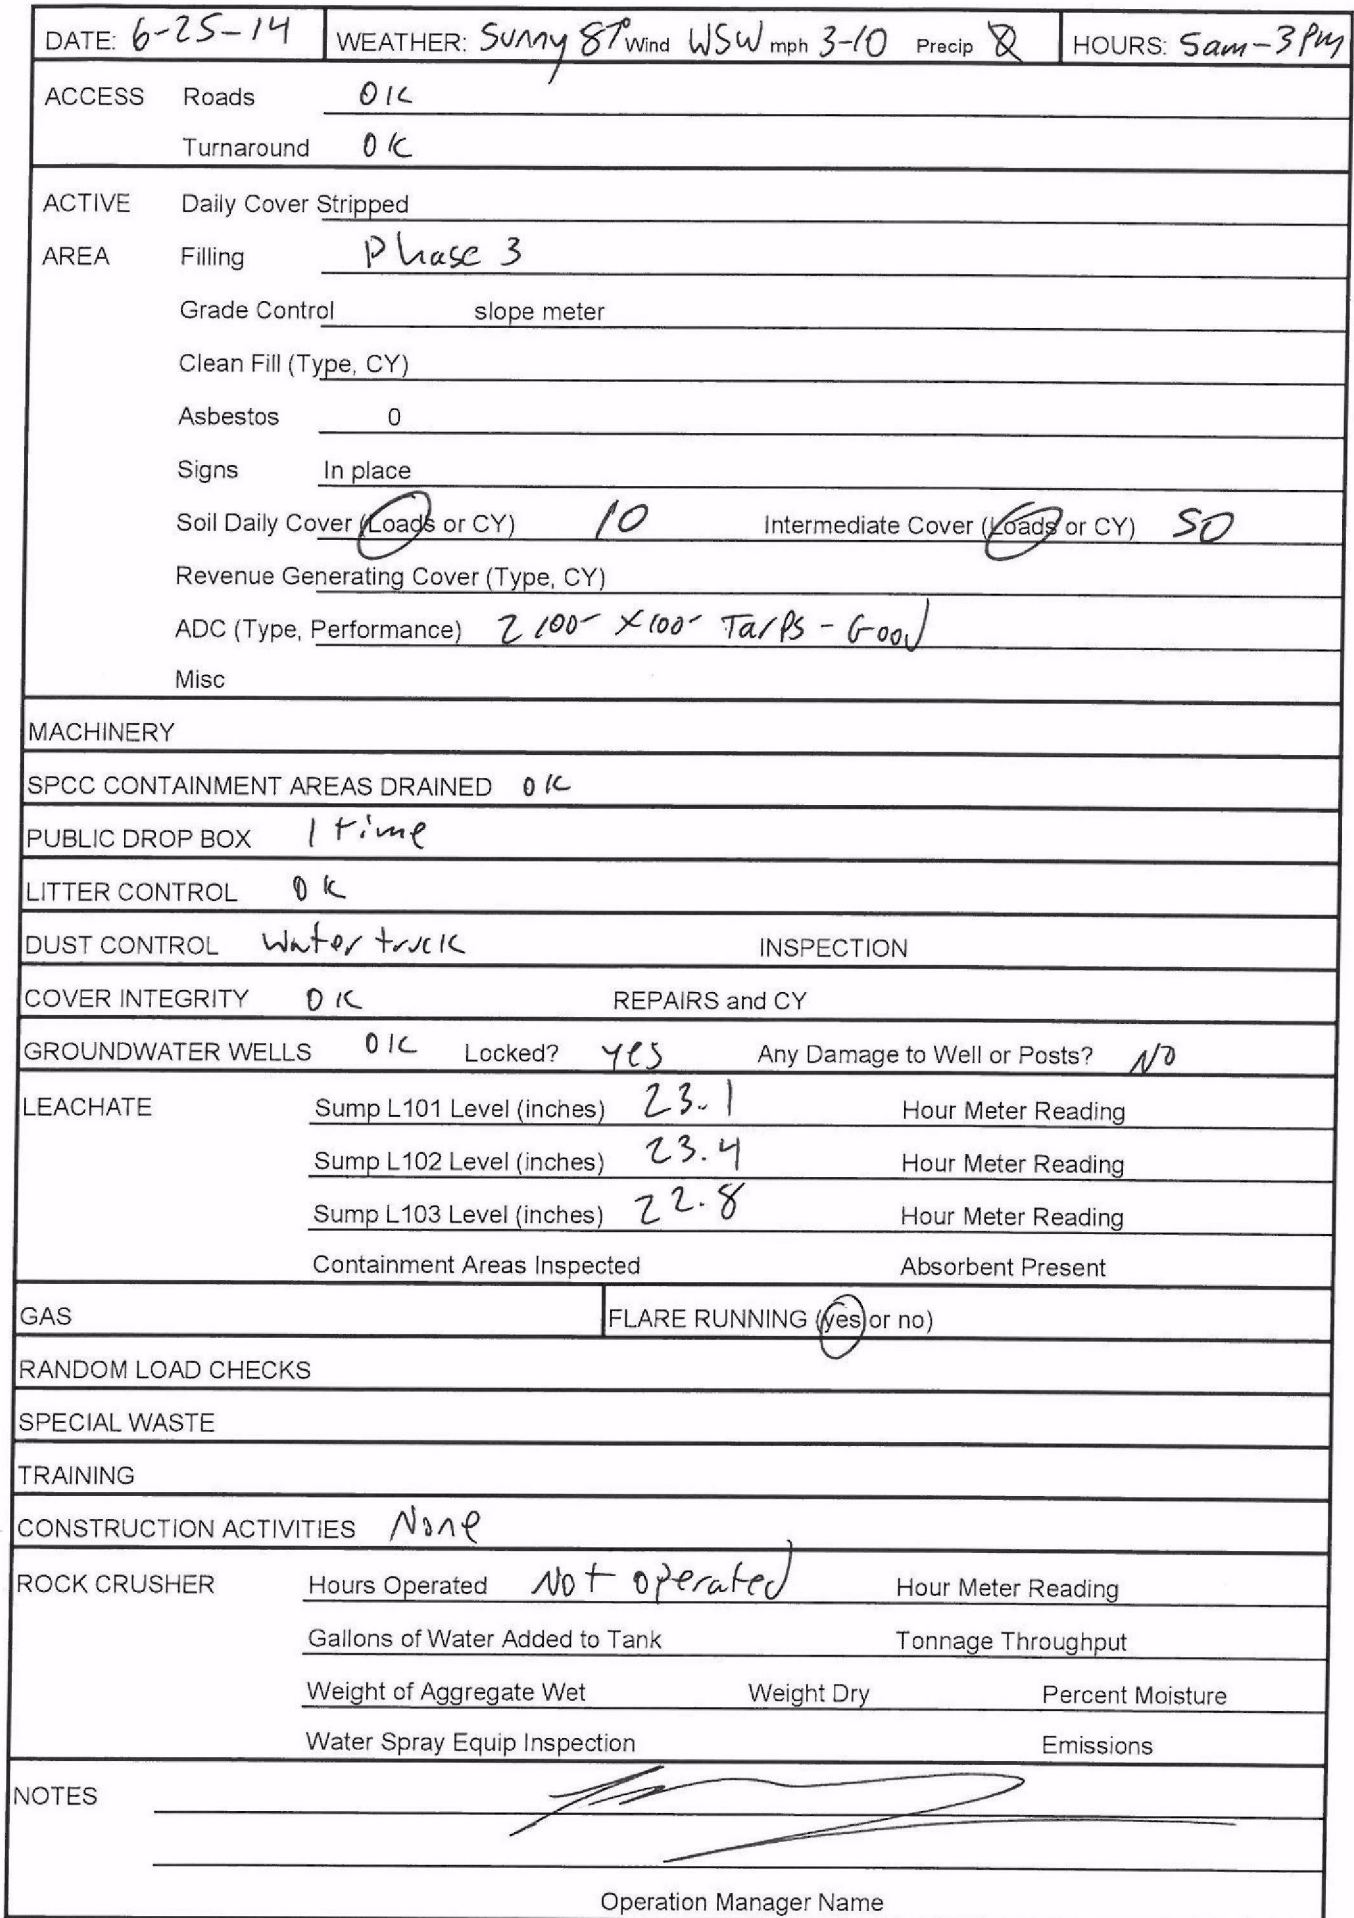 DATE: 6-25-14 WEATHER: Sunny 87° Wind WSW mph 3-10 Precip 0 HOURS: 5am-3pm
ACCESS Roads OK
Turnaround OK
ACTIVE Daily Cover Stripped
AREA Filling Phase 3
Grade Control slope meter
Clean Fill (Type, CY)
Asbestos 0
Signs In place
Soil Daily Cover (Loads or CY) 10 Intermediate Cover (Loads or CY) 50
Revenue Generating Cover (Type, CY)
ADC (Type, Performance) 2 100' x100' Tarps - Good
Misc
MACHINERY
SPCC CONTAINMENT AREAS DRAINED OK
PUBLIC DROP BOX 1 time
LITTER CONTROL OK
DUST CONTROL Water truck INSPECTION
COVER INTEGRITY OK REPAIRS and CY
GROUNDWATER WELLS OK Locked? yes Any Damage to Well or Posts? NO
LEACHATE Sump L101 Level (inches) 23.1 Hour Meter Reading
Sump L102 Level (inches) 23.4 Hour Meter Reading
Sump L103 Level (inches) 22.8 Hour Meter Reading
Containment Areas Inspected Absorbent Present
GAS FLARE RUNNING (yes or no)
RANDOM LOAD CHECKS
SPECIAL WASTE
TRAINING
CONSTRUCTION ACTIVITIES None
ROCK CRUSHER Hours Operated Not operated Hour Meter Reading
Gallons of Water Added to Tank Tonnage Throughput
Weight of Aggregate Wet Weight Dry Percent Moisture
Water Spray Equip Inspection Emissions
NOTES
Operation Manager Name